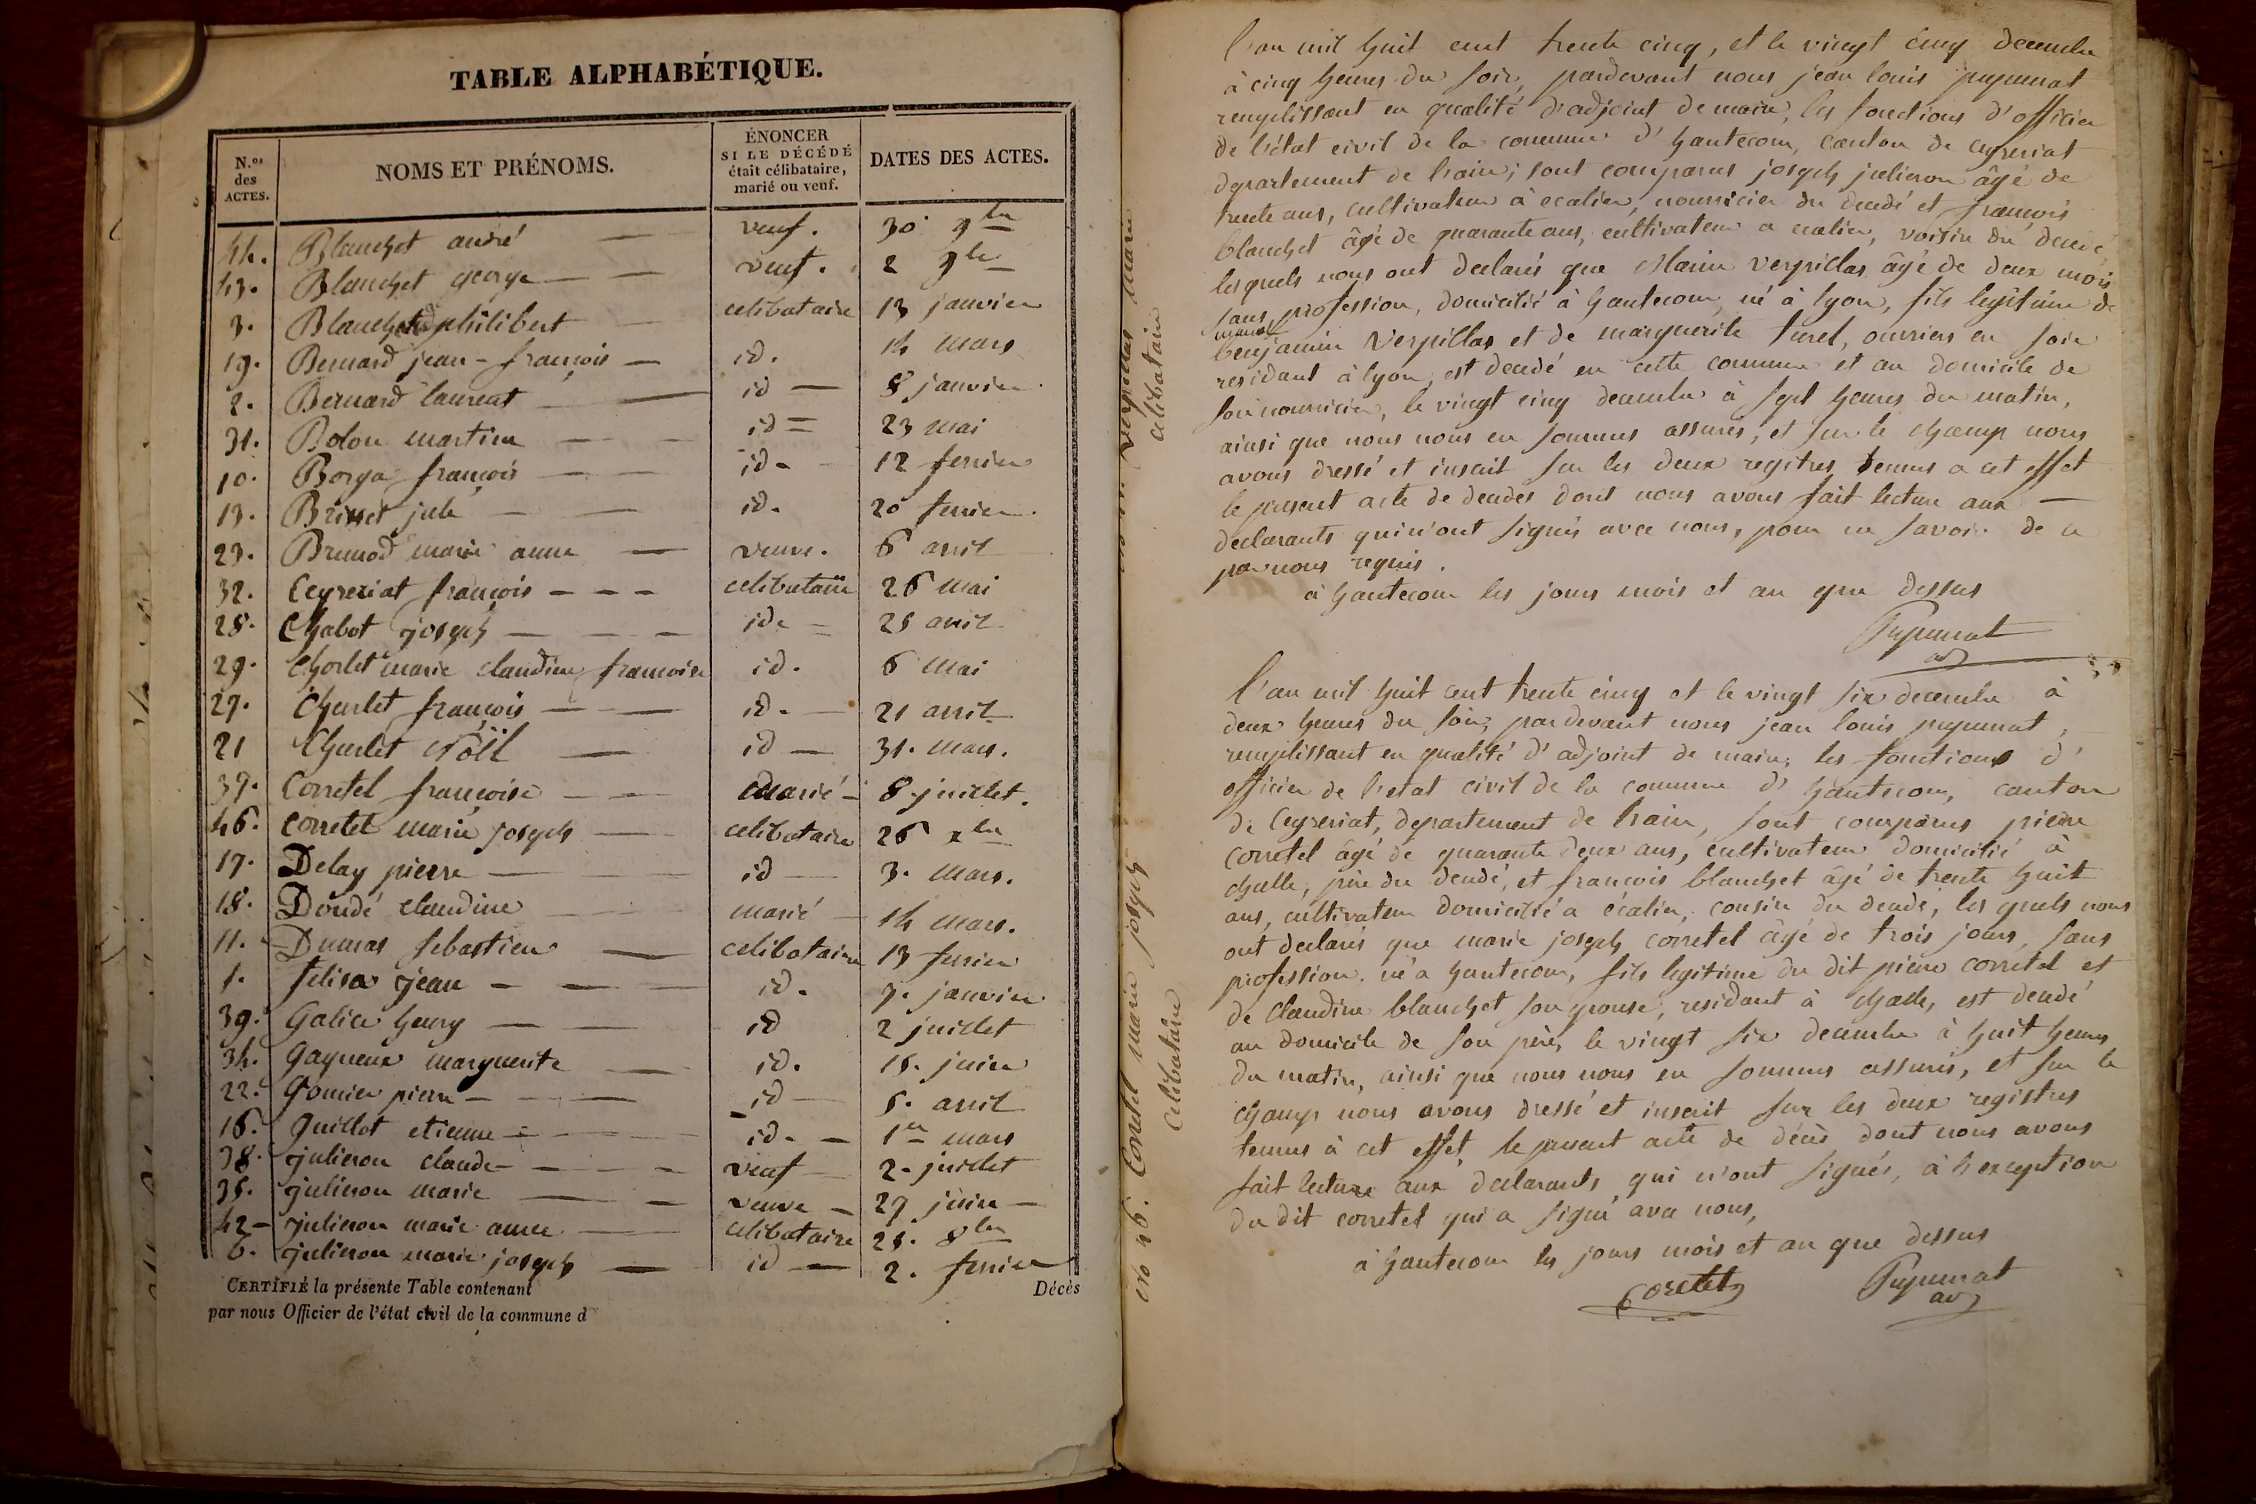 TABLE ALPHABÉTIQUE.
N.os des ACTES. NOMS ET PRÉNOMS. ÉNONCER SI LE DÉCÉDÉ était célibataire, marié ou veuf. DATES DES ACTES.
44. Blanchet andré veuf. 30 9bre
43. Blanchet george veuf. 2 9bre
3. Blanchet philibert celibataire 13 janvier
19. Bernard jean-françois id. 14 mars
2. Bernard laurent id 8 janvier
31. Bolon martin id 23 mai
10. Borga françois id. 12 fevrier
13. Brisset jule id. 20 fevrier.
23. Brunod marie anne veuve. 6 avril
32. Ceyzeriat françois celibataire 26 mai
28. Chabot joseph id. 25 avril
29. Chorlet marie claudine francoise id. 6 mai
27. Charlet françois id. 21 avril
21 Charlet Nöël id 31. mars.
37. Corretel françoise marié 8 juillet.
46. Corretel marie joseph celibataire 26 xbre
17. Delay pierre id 3. mars.
18. Doudé claudine marié 14 mars.
11. Dumas sebastien celibataire 13 fevrier
1. felisa jean id. 7. janvier
39. Galice henry id 2 juillet
34. Gayneux marguerite id. 15. juin
22. Gomier pierre id 5. avril
16. Guillot etienne id. 1er mars
38. julieron claude veuf 2. juillet
35. julieron marie veuve 27 juin
42 julieron marie anne celibataire 25. 8bre
6. julieron marie joseph id 2. fevrier
CERTIFIÉ la présente Table contenant Décès
par nous Officier de l'état civil de la commune d
verpillas marie
celibataire
l'an mil huit cent trente cinq, et le vingt cinq decembre
à cinq heures du soir, pardevant nous jean louis pupunat
remplissant en qualité d'adjoint de maire, les fonctions d'officier
de l'état civil de la commune d'hautecour, canton de ceyzeriat
departement de l'ain; sont comparus joseph julieron âgé de
trente ans, cultivateur à ecalier, nourricier du decedé et françois
blanchet âgé de quarante ans, cultivateur a ecalier, voisin du decedé
lesquels nous ont declarés que Marin verpillas âgé de deux mois
sans profession, domicilié à hautecour, né à lyon, fils legitime de
benjamin verpillas et de marguerite turel, ouvriers en soie
residant à lyon, est decedé en cette commune et au domicile de
son nourricier, le vingt cinq decembre à sept heures du matin,
ainsi que nous nous en sommes assurés, et sur le champ nous
avons dressé et inscrit sur les deux registres tenus a cet effet
le present acte de deudés dont nous avons fait lecture aux
declarants qui n'ont signés avec nous, pour ne savoir de ce
par nous requis.
à hautecour les jours mois et an que dessus
Pupunat
adj
no 46. Corretel marie joseph
celibataire
l'an mil huit cent trente cinq et le vingt six decembre à
deux heures du soir, pardevant nous jean louis pupunat,
remplissant en qualité d'adjoint de maire, les fonctions d'
officier de l'etat civil de la commune d'hautecour, canton
de Ceyzeriat, departement de l'ain, sont comparus pierre
corretel âgé de quarante deux ans, cultivateur domicilié à
challe, père du decedé, et françois blanchet âgé de trente huit
ans, cultivateur domicilié a écalier, cousin du decedé, les quels nous
ont declarés que marie joseph corretel âgé de trois jours, sans
profession, né a hautecour, fils legitime du dit pierre corretel et
de claudine blanchet son epouse, residant à challe, est decedé
au domicile de son père, le vingt six decembre à huit heures
du matin, ainsi que nous nous en sommes assurés, et sur le
champ nous avons dressé et inscrit sur les deux registres
tenus à cet effet, le present acte de décès dont nous avons
fait lecture aux declarants, qui n'ont signés, à l'exception
du dit corretel qui a signé avec nous,
à hautecour les jours mois et an que dessus
Coretet Pupunat
adj